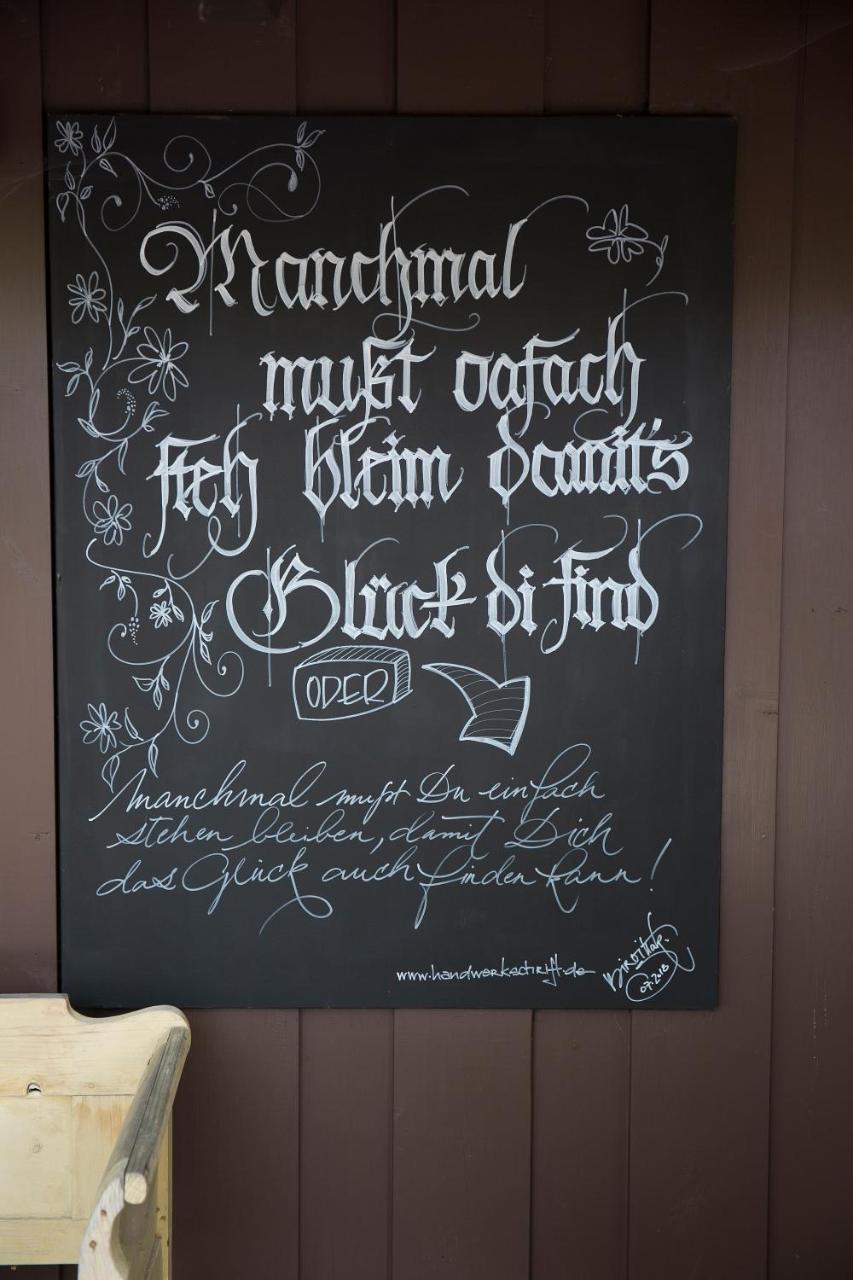 Manchmal
mußt oafach
steh bleim damit's
Glück di find
ODER
Manchmal mußt Du einfach
stehen bleiben, damit Dich
das Glück auch finden kann!
www.handwerkschrift.de
07.2018